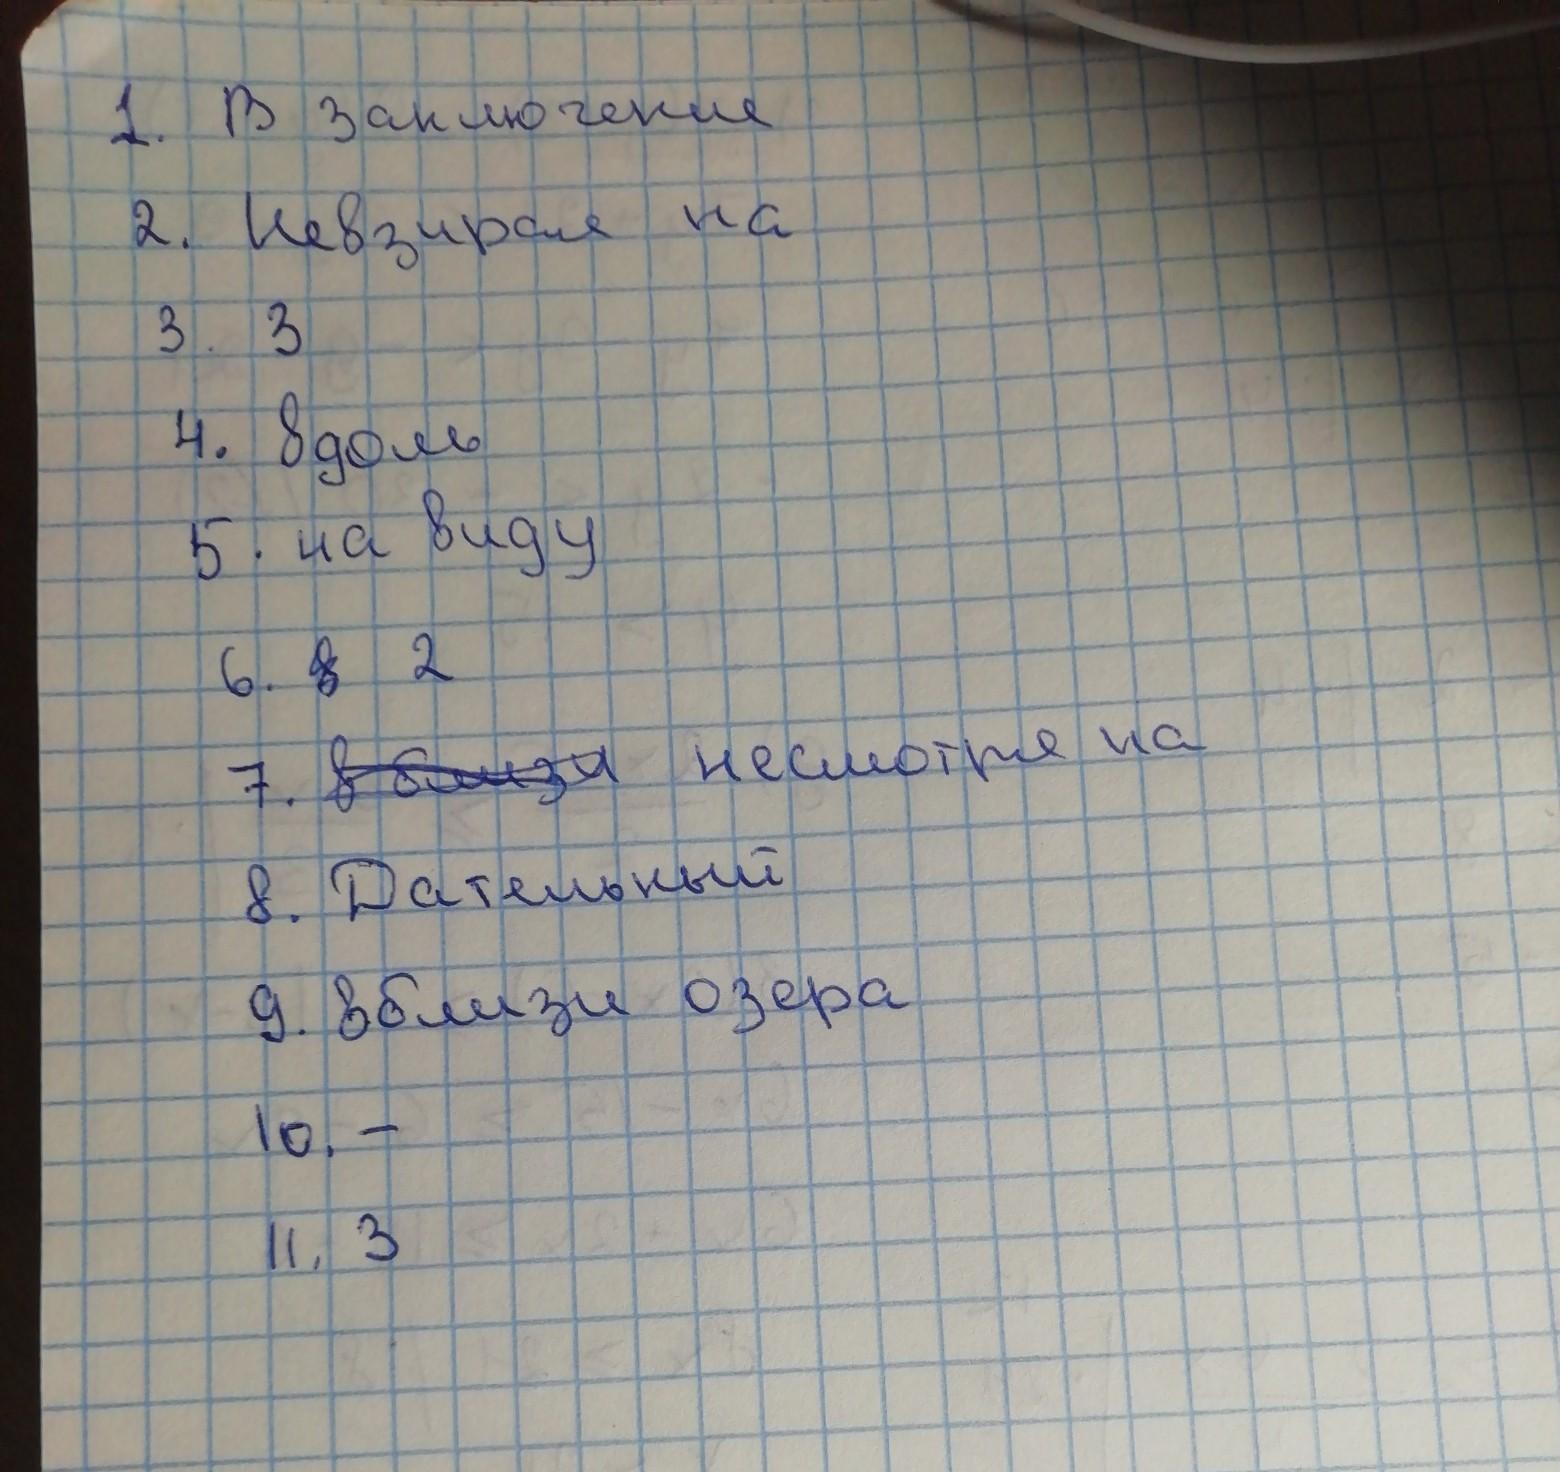 1. В заключение
2. Невзирая на
3. 3
4. вдоль
5. на виду
6. 2
7. вблизи несмотря на
8. Дательный
9. вблизи озера
10. –
11. 3